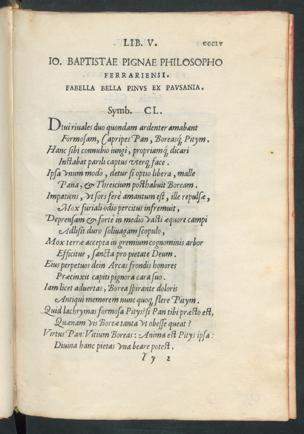 LIB. V. cccLV
IO. BAPTISTAE PIGNAE PHILOSOPHO
FERRARIENSI.
FABELLA BELLA PINVS EX PAVSANIA.
Symb. CL.
Diui riuales duo quondam ardenter amabant
Formosam, Capripes Pan, Boreasq́; Pitym.
Hanc sibi connubio iungi, propriamq́; dicari
Instabat parili captus vterq́; face.
Ipsa vnum modo, detur si optio libera, malle
Pana, & Threicium posthabuit Boream.
Impatiens, vt fors ferè amantum est, ille repulsæ,
Mox furiali odio percitus infremuit,
Deprensam & fortè in medio vasti æquore campi
Adlisit duro soliuagam scopulo,
Mox terræ accepta in gremium cognominis arbor
Efficitur, sancta pro pietate Deum.
Eius perpetuos dein Arcas frondis honores
Præcinxit capiti pignora cara suo.
Iam licet aduertas, Borea spirante doloris
Antiqui memorem nunc quoq́; flere Pitym.
Quid lachrymas formosa Pitys? si Pan tibi præsto est,
Quænam vis Boreæ tanta vt obesse queat?
Virtus Pan: Vitium Boreas: Anima est Pitys ipsa:
Diuina hanc pietas vna beare potest.
Yy 2